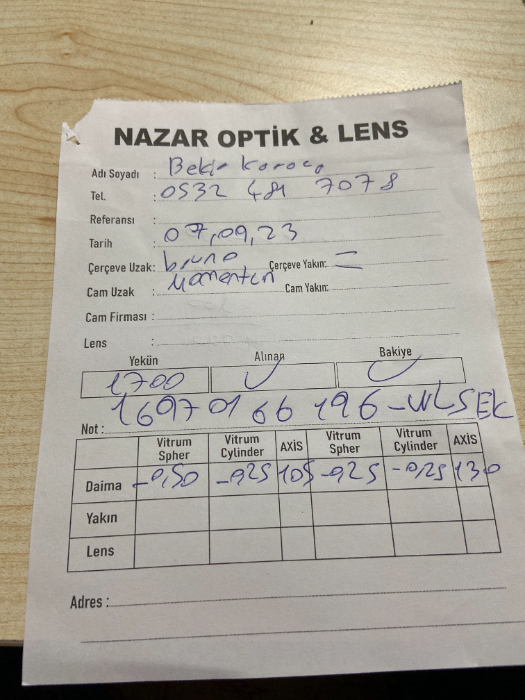 NAZAR OPTİK & LENS
Adı Soyadı : Bekir Karaca
Tel. : 0532 481 7078
Referansı :
Tarih : 07,09,23
Çerçeve Uzak: bruno Çerçeve Yakın: =
Cam Uzak : Cam Yakın:
Cam Firması :
Lens :
Yekün Alınan Bakiye
1700
Not : 16970166196
Vitrum Spher Vitrum Cylinder AXİS Vitrum Spher Vitrum Cylinder AXİS
Daima -0,50 -0,25 105 -0,25 -0,25 130
Yakın
Lens
Adres :